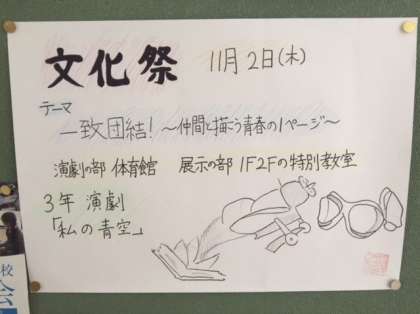 文化祭 11月2日(木)
テーマ
一致団結! ~仲間と描こう青春の1ページ~
演劇の部 体育館 展示の部 1F2Fの特別教室
3年 演劇
「私の青空」
校
会